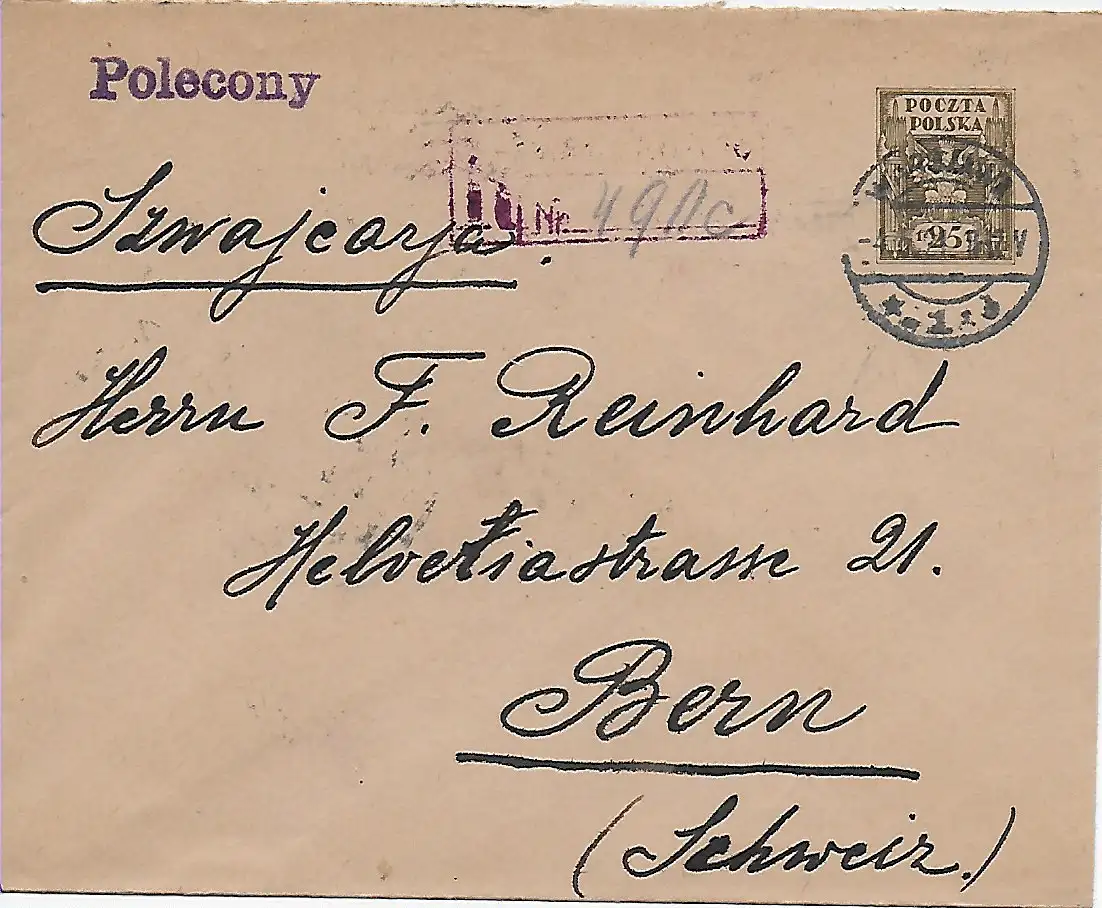 Polecony
POCZTA
POLSKA
25
Nr.
Szwajcarja.
Herrn F. Reinhard
Helvetiastrasse 21.
Bern
(Schweiz.)